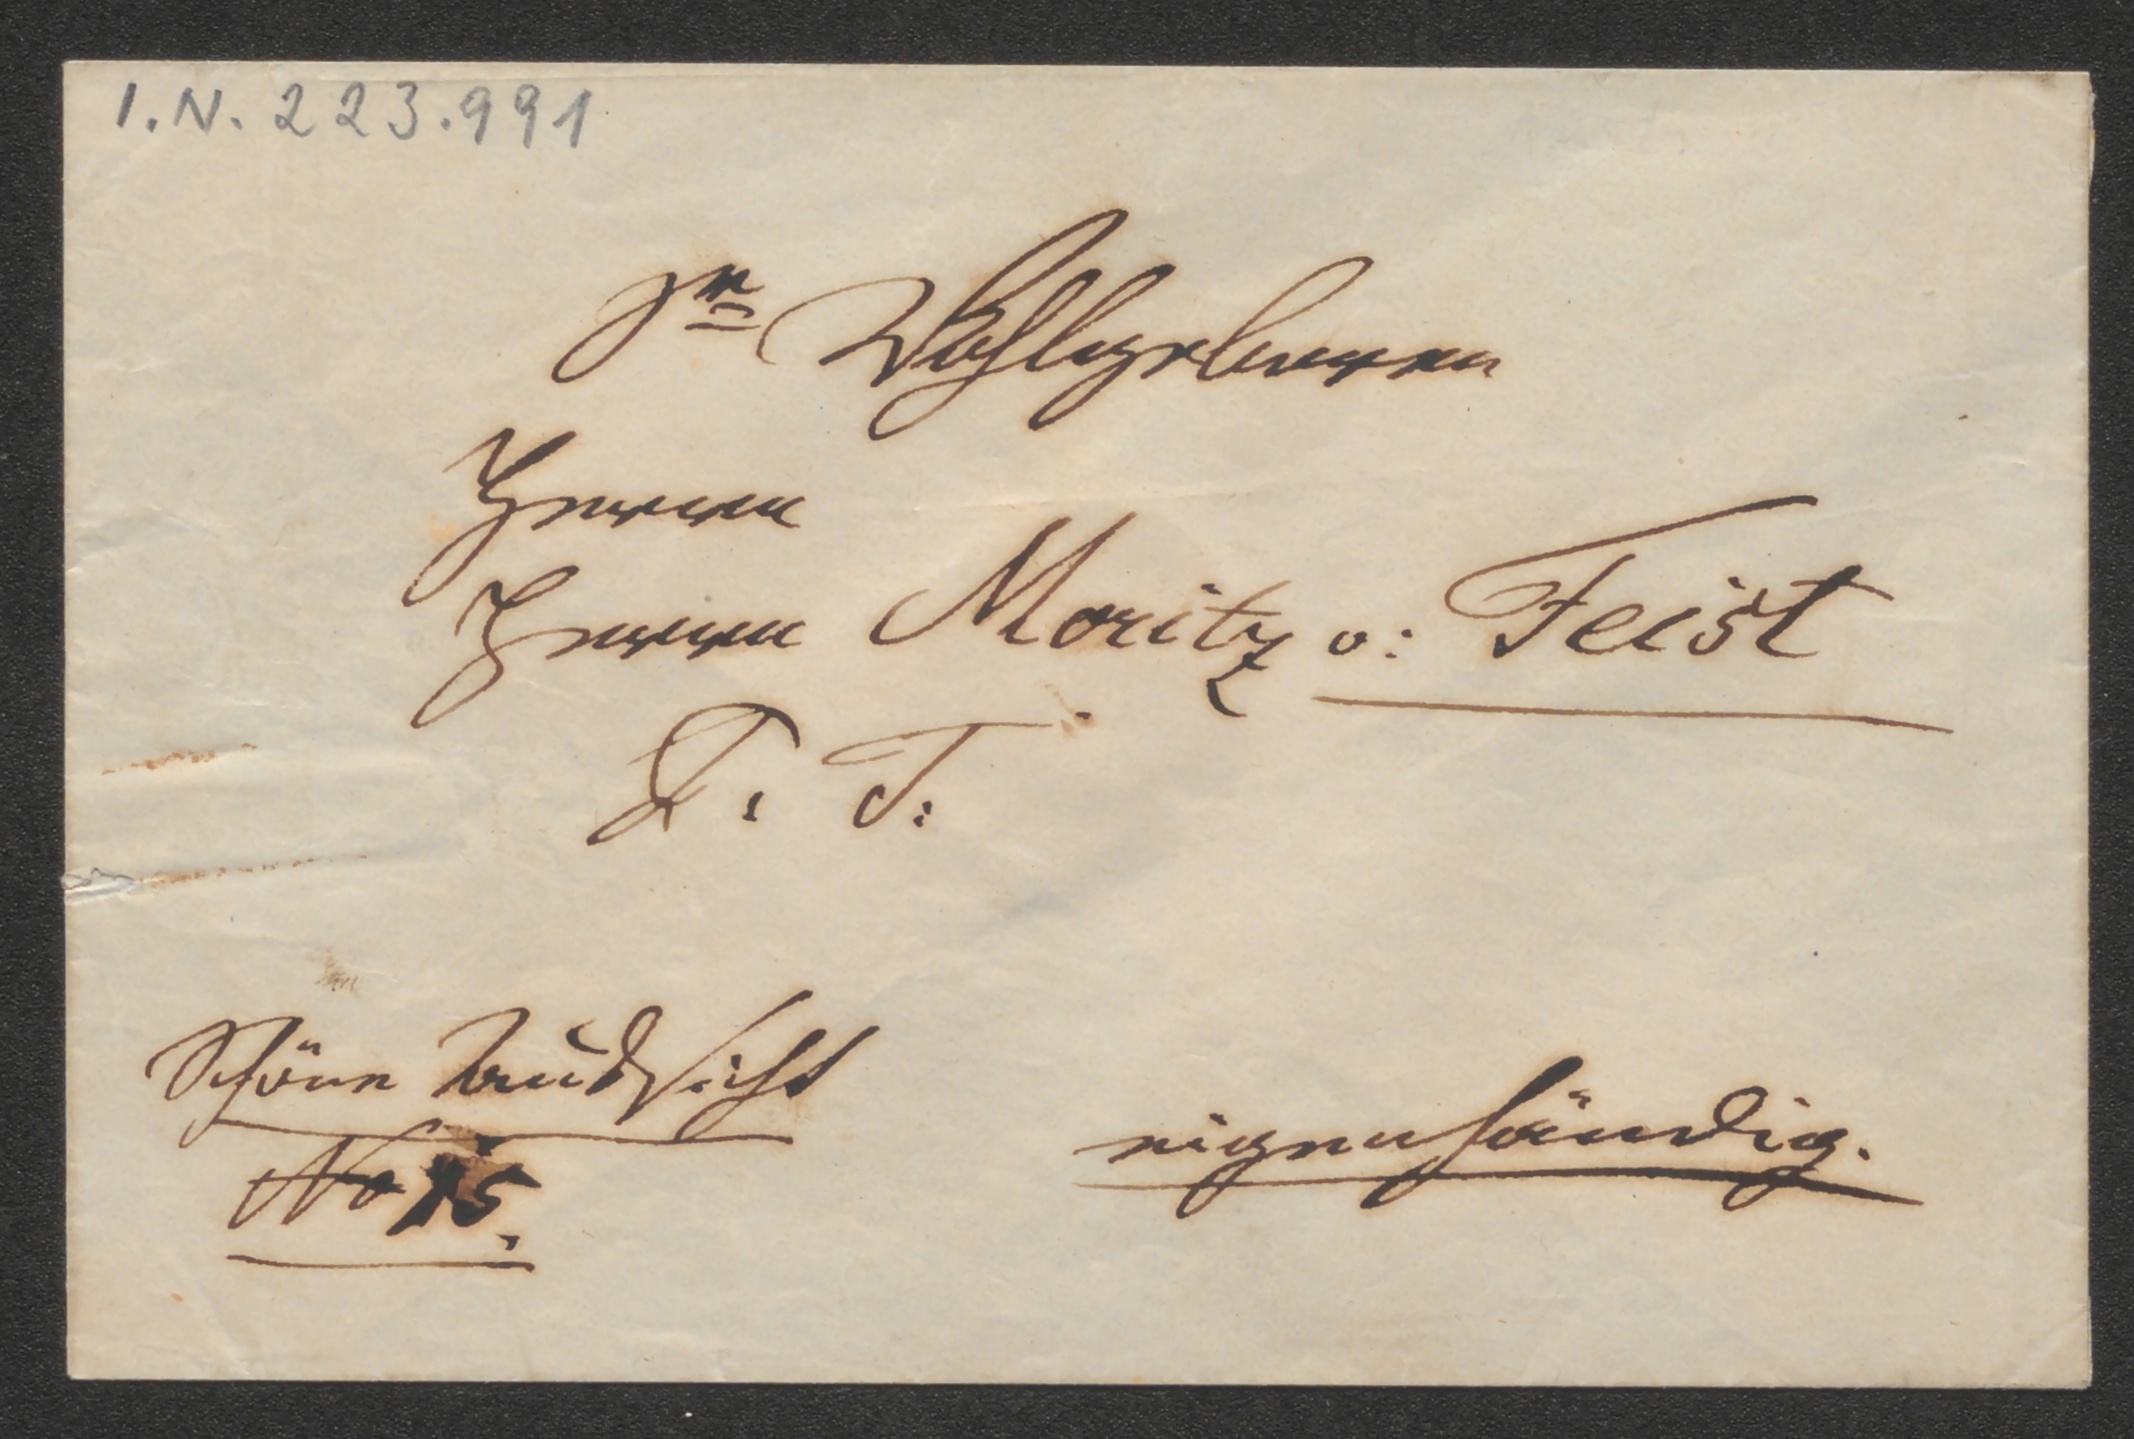 I.N. 223.991
Sr Wohlgeboren
Herrn
Herrn Moritz v: Feist
P. T:
Schöne Aussicht
No 15.
eigenhändig.